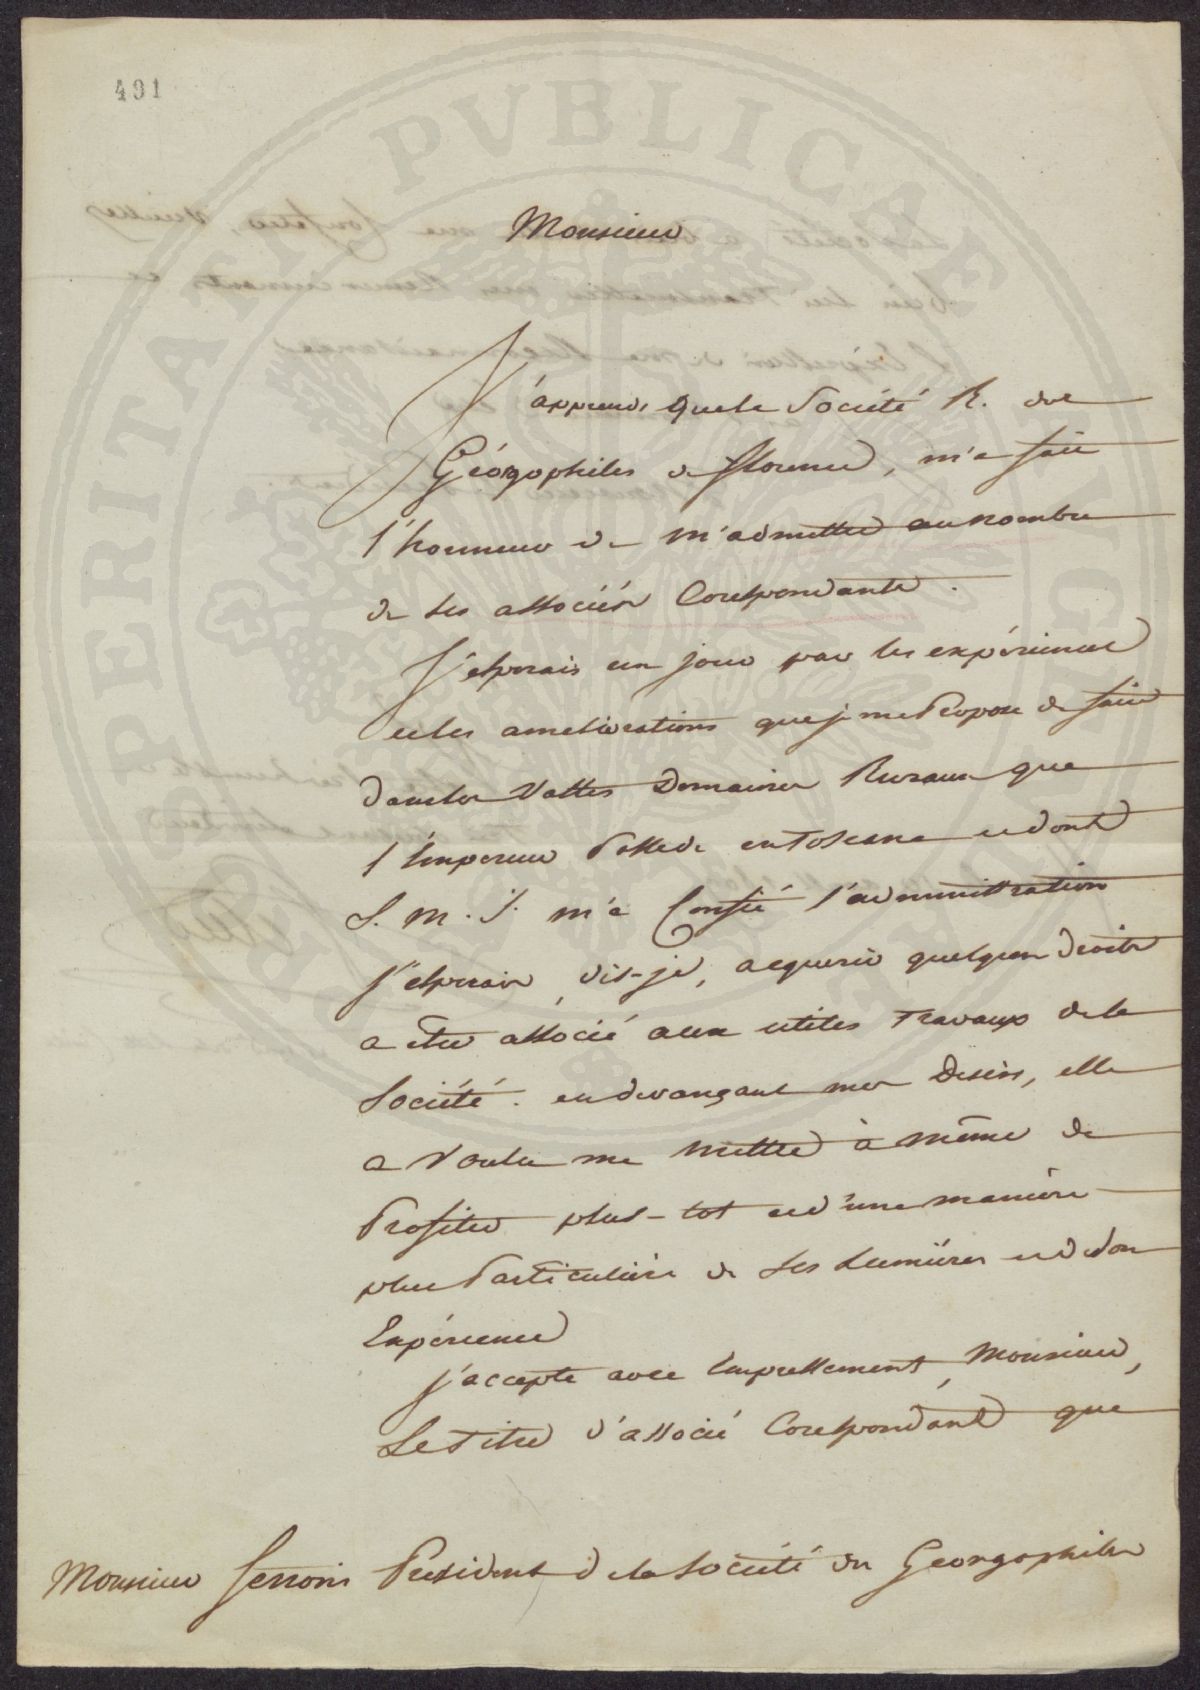 491
Monsieur
J'apprends que la Société R. des
Géorgophiles de florence, m'a fait
l'honneur de m'admettre au nombre
de ses associés Corespondants.
J'esperais un jour par les expériences
et les ameliorations que je me Propose de faire
dans les Vastes Domaines Ruraux que
l'Empereur Possede en Toscane et dont
S. M. I. m'a Confié l'administration
j'esperais, dis-je, acquerir quelques droits
a etre associé aux utiles Travaux de la
Société. en devançant mes Desirs, elle
a Voulu me mettre à même de
Profiter plus-tot et d'une maniere
plus Particuliere de ses Lumières et de son
Expérience
j'accepte avec Empressement, Monsieur,
Le Titre d'associé Corespondant que
Monsieur ferroni Président de la Société des Georgophiles
PROSPERITATI PVBLICAE AVGENDAE